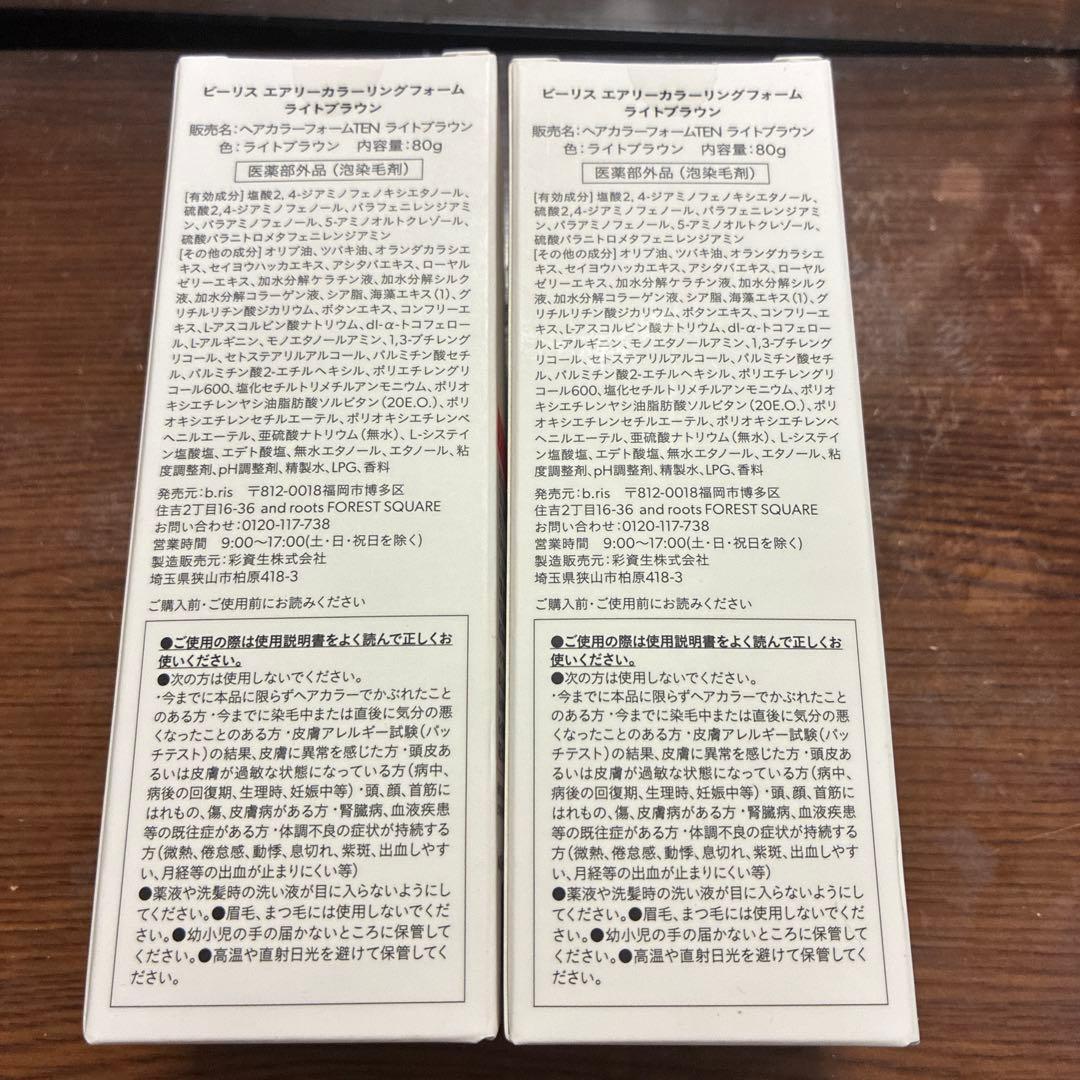 ビーリス エアリーカラーリングフォーム
ライトブラウン
販売名:ヘアカラーフォームTEN ライトブラウン
色:ライトブラウン 内容量:80g
医薬部外品(泡染毛剤)
[有効成分]塩酸2,4-ジアミノフェノキシエタノール、
硫酸2,4-ジアミノフェノール、パラフェニレンジアミ
ン、パラアミノフェノール、5-アミノオルトクレゾール、
硫酸パラニトロメタフェニレンジアミン
[その他の成分]オリブ油、ツバキ油、オランダカラシエ
キス、セイヨウハッカエキス、アシタバエキス、ローヤル
ゼリーエキス、加水分解ケラチン液、加水分解シルク
液、加水分解コラーゲン液、シア脂、海藻エキス(1)、グ
リチルリチン酸ジカリウム、ボタンエキス、コンフリーエ
キス、L-アスコルビン酸ナトリウム、dl-α-トコフェロー
ル、L-アルギニン、モノエタノールアミン、1,3-ブチレング
リコール、セトステアリルアルコール、パルミチン酸セチ
ル、パルミチン酸2-エチルヘキシル、ポリエチレングリ
コール600、塩化セチルトリメチルアンモニウム、ポリオ
キシエチレンヤシ油脂肪酸ソルビタン(20E.O.)、ポリ
オキシエチレンセチルエーテル、ポリオキシエチレンベ
ヘニルエーテル、亜硫酸ナトリウム(無水)、L-システイ
ン塩酸塩、エデト酸塩、無水エタノール、エタノール、粘
度調整剤、pH調整剤、精製水、LPG、香料
発売元:b.ris 〒812-0018福岡市博多区
住吉2丁目16-36 and roots FOREST SQUARE
お問い合わせ:0120-117-738
営業時間 9:00〜17:00(土・日・祝日を除く)
製造販売元:彩資生株式会社
埼玉県狭山市柏原418-3
ご購入前・ご使用前にお読みください
●ご使用の際は使用説明書をよく読んで正しくお
使いください。
●次の方は使用しないでください。
・今までに本品に限らずヘアカラーでかぶれたこと
のある方・今までに染毛中または直後に気分の悪
くなったことのある方・皮膚アレルギー試験(パッ
チテスト)の結果、皮膚に異常を感じた方・頭皮あ
るいは皮膚が過敏な状態になっている方(病中、
病後の回復期、生理時、妊娠中等)・頭、顔、首筋に
はれもの、傷、皮膚病がある方・腎臓病、血液疾患
等の既往症がある方・体調不良の症状が持続する
方(微熱、倦怠感、動悸、息切れ、紫斑、出血しやす
い、月経等の出血が止まりにくい等)
●薬液や洗髪時の洗い液が目に入らないようにし
てください。●眉毛、まつ毛には使用しないでくだ
さい。●幼小児の手の届かないところに保管して
ください。●高温や直射日光を避けて保管してく
ださい。
ビーリス エアリーカラーリングフォーム
ライトブラウン
販売名:ヘアカラーフォームTEN ライトブラウン
色:ライトブラウン 内容量:80g
医薬部外品(泡染毛剤)
[有効成分]塩酸2,4-ジアミノフェノキシエタノール、
硫酸2,4-ジアミノフェノール、パラフェニレンジアミ
ン、パラアミノフェノール、5-アミノオルトクレゾール、
硫酸パラニトロメタフェニレンジアミン
[その他の成分]オリブ油、ツバキ油、オランダカラシエ
キス、セイヨウハッカエキス、アシタバエキス、ローヤル
ゼリーエキス、加水分解ケラチン液、加水分解シルク
液、加水分解コラーゲン液、シア脂、海藻エキス(1)、グ
リチルリチン酸ジカリウム、ボタンエキス、コンフリーエ
キス、L-アスコルビン酸ナトリウム、dl-α-トコフェロー
ル、L-アルギニン、モノエタノールアミン、1,3-ブチレング
リコール、セトステアリルアルコール、パルミチン酸セチ
ル、パルミチン酸2-エチルヘキシル、ポリエチレングリ
コール600、塩化セチルトリメチルアンモニウム、ポリオ
キシエチレンヤシ油脂肪酸ソルビタン(20E.O.)、ポリ
オキシエチレンセチルエーテル、ポリオキシエチレンベ
ヘニルエーテル、亜硫酸ナトリウム(無水)、L-システイ
ン塩酸塩、エデト酸塩、無水エタノール、エタノール、粘
度調整剤、pH調整剤、精製水、LPG、香料
発売元:b.ris 〒812-0018福岡市博多区
住吉2丁目16-36 and roots FOREST SQUARE
お問い合わせ:0120-117-738
営業時間 9:00〜17:00(土・日・祝日を除く)
製造販売元:彩資生株式会社
埼玉県狭山市柏原418-3
ご購入前・ご使用前にお読みください
●ご使用の際は使用説明書をよく読んで正しくお
使いください。
●次の方は使用しないでください。
・今までに本品に限らずヘアカラーでかぶれたこと
のある方・今までに染毛中または直後に気分の悪
くなったことのある方・皮膚アレルギー試験(パッ
チテスト)の結果、皮膚に異常を感じた方・頭皮あ
るいは皮膚が過敏な状態になっている方(病中、
病後の回復期、生理時、妊娠中等)・頭、顔、首筋に
はれもの、傷、皮膚病がある方・腎臓病、血液疾患
等の既往症がある方・体調不良の症状が持続する
方(微熱、倦怠感、動悸、息切れ、紫斑、出血しやす
い、月経等の出血が止まりにくい等)
●薬液や洗髪時の洗い液が目に入らないようにし
てください。●眉毛、まつ毛には使用しないでくだ
さい。●幼小児の手の届かないところに保管して
ください。●高温や直射日光を避けて保管してく
ださい。